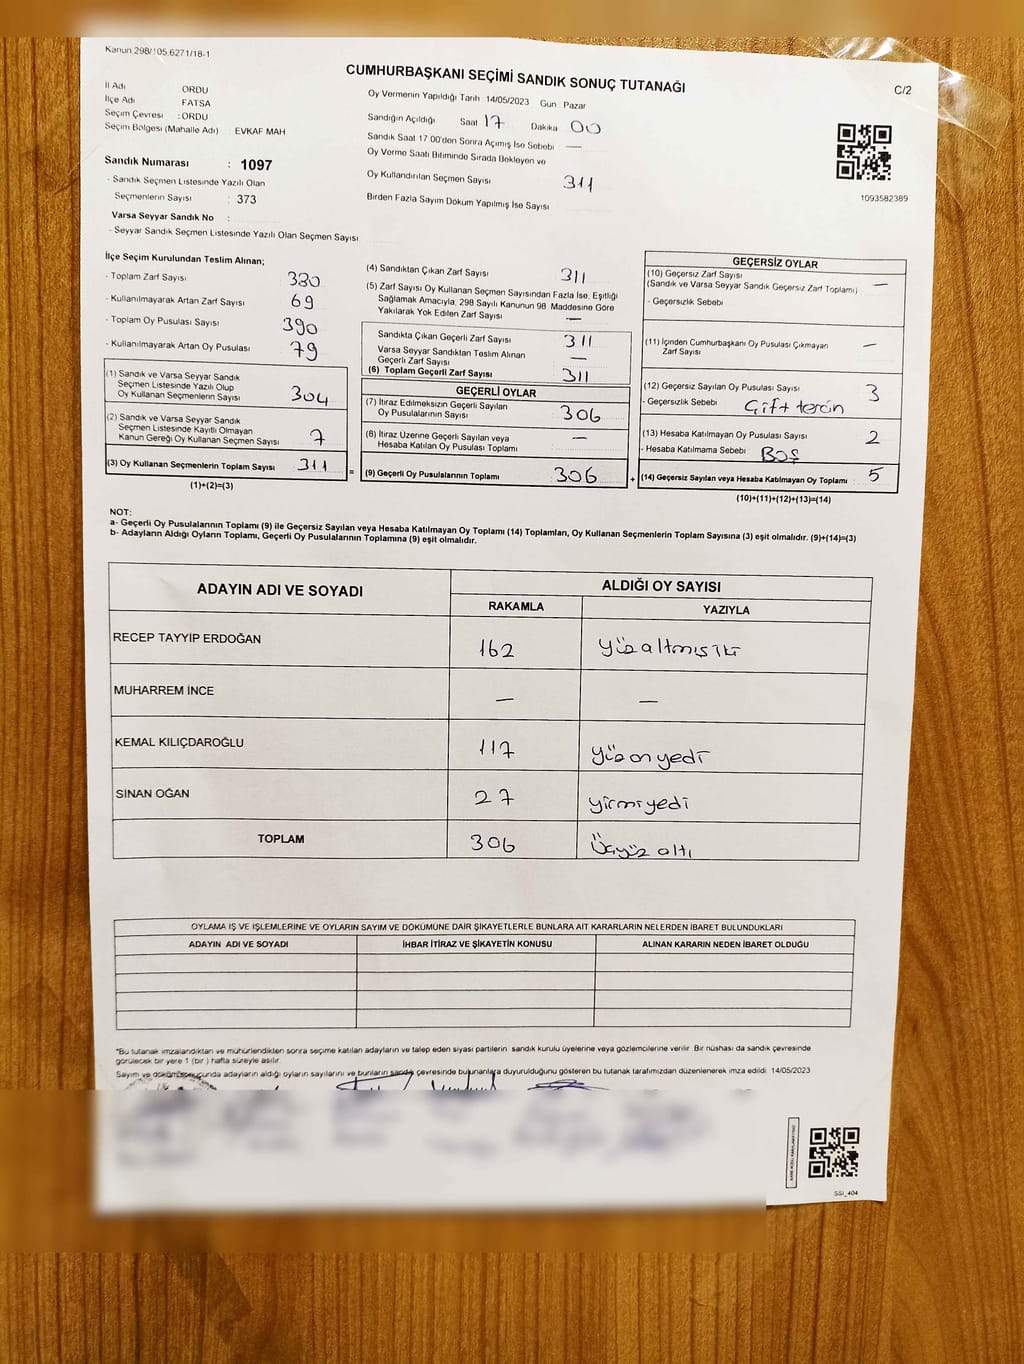 Kanun 298/105.6271/18-1
CUMHURBAŞKANI SEÇİMİ SANDIK SONUÇ TUTANAĞI
C/2
İl Adı ORDU
İlçe Adı FATSA
Seçim Çevresi : ORDU
Seçim Bölgesi (Mahalle Adı) EVKAF MAH
Sandık Numarası : 1097
- Sandık Seçmen Listesinde Yazılı Olan
Seçmenlerin Sayısı : 373
Varsa Seyyar Sandık No :
- Seyyar Sandık Seçmen Listesinde Yazılı Olan Seçmen Sayısı
Oy Vermenin Yapıldığı Tarih 14/05/2023 Gün Pazar
Sandığın Açıldığı Saat 17 Dakika 00
Sandık Saat 17.00'den Sonra Açılmış İse Sebebi —
Oy Verme Saati Bitiminde Sırada Bekleyen ve
Oy Kullandırılan Seçmen Sayısı 311
Birden Fazla Sayım Döküm Yapılmış İse Sayısı
1093582389
İlçe Seçim Kurulundan Teslim Alınan;
- Toplam Zarf Sayısı 380
- Kullanılmayarak Artan Zarf Sayısı 69
- Toplam Oy Pusulası Sayısı 390
- Kullanılmayarak Artan Oy Pusulası 79
(1) Sandık ve Varsa Seyyar Sandık
Seçmen Listesinde Yazılı Olup
Oy Kullanan Seçmenlerin Sayısı 304
(2) Sandık ve Varsa Seyyar Sandık
Seçmen Listesinde Kayıtlı Olmayan
Kanun Gereği Oy Kullanan Seçmen Sayısı 7
(3) Oy Kullanan Seçmenlerin Toplam Sayısı 311 =
(1)+(2)=(3)
(4) Sandıktan Çıkan Zarf Sayısı 311
(5) Zarf Sayısı Oy Kullanan Seçmen Sayısından Fazla İse, Eşitliği
Sağlamak Amacıyla, 298 Sayılı Kanunun 98. Maddesine Göre
Yakılarak Yok Edilen Zarf Sayısı —
Sandıkta Çıkan Geçerli Zarf Sayısı 311
Varsa Seyyar Sandıktan Teslim Alınan
Geçerli Zarf Sayısı —
(6) Toplam Geçerli Zarf Sayısı 311
GEÇERLİ OYLAR
(7) İtiraz Edilmeksizin Geçerli Sayılan
Oy Pusulalarının Sayısı 306
(8) İtiraz Üzerine Geçerli Sayılan veya
Hesaba Katılan Oy Pusulası Toplamı —
(9) Geçerli Oy Pusulalarının Toplamı 306 +
GEÇERSİZ OYLAR
(10) Geçersiz Zarf Sayısı
(Sandık ve Varsa Seyyar Sandık Geçersiz Zarf Toplamı) —
- Geçersizlik Sebebi
(11) İçinden Cumhurbaşkanı Oy Pusulası Çıkmayan
Zarf Sayısı —
(12) Geçersiz Sayılan Oy Pusulası Sayısı 3
- Geçersizlik Sebebi Çift tercih
(13) Hesaba Katılmayan Oy Pusulası Sayısı 2
- Hesaba Katılmama Sebebi BOŞ
(14) Geçersiz Sayılan veya Hesaba Katılmayan Oy Toplamı 5
(10)+(11)+(12)+(13)=(14)
NOT:
a- Geçerli Oy Pusulalarının Toplamı (9) ile Geçersiz Sayılan veya Hesaba Katılmayan Oy Toplamı (14) Toplamları, Oy Kullanan Seçmenlerin Toplam Sayısına (3) eşit olmalıdır. (9)+(14)=(3)
b- Adayların Aldığı Oyların Toplamı, Geçerli Oy Pusulalarının Toplamına (9) eşit olmalıdır.
ADAYIN ADI VE SOYADI ALDIĞI OY SAYISI
RAKAMLA YAZIYLA
RECEP TAYYİP ERDOĞAN 162 yüzaltmışiki
MUHARREM İNCE — —
KEMAL KILIÇDAROĞLU 117 yüzonyedi
SİNAN OĞAN 27 yirmiyedi
TOPLAM 306 Üçyüz altı
OYLAMA İŞ VE İŞLEMLERİNE VE OYLARIN SAYIM VE DÖKÜMÜNE DAİR ŞİKAYETLERLE BUNLARA AİT KARARLARIN NELERDEN İBARET BULUNDUKLARI
ADAYIN ADI VE SOYADI İHBAR İTİRAZ VE ŞİKAYETİN KONUSU ALINAN KARARIN NEDEN İBARET OLDUĞU
*Bu tutanak imzalandıktan ve mühürlendikten sonra seçime katılan adayların ve talep eden siyasi partilerin sandık kurulu üyelerine veya gözlemcilerine verilir. Bir nüshası da sandık çevresinde
görülecek bir yere 1 (bir) hafta süreyle asılır.
Sayım ve dökümü sonucunda adayların aldığı oyların sayılarını ve bunların sandık çevresinde bulunanlara duyurulduğunu gösteren bu tutanak tarafımızdan düzenlenerek imza edildi. 14/05/2023
SSI_404